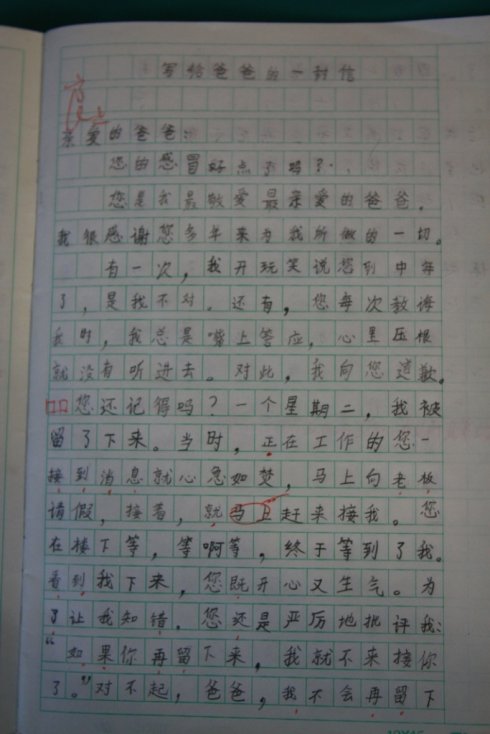 写给爸爸的一封信
亲爱的爸爸：
您的感冒好点了吗？
您是我最敬爱最亲爱的爸爸。
我很感谢您多年来为我所做的一切。
有一次，我开玩笑说您到中年
了，是我不对。还有，您每次教诲
我时，我总是嘴上答应，心里压根
就没有听进去。对此，我向您道歉。
您还记得吗？一个星期二，我被
留了下来。当时，正在工作的您一
接到消息就心忽如焚，马上向老板
请假，接着，就马上赶来接我。您
在楼下等，等啊等，终于等到了我。
看到我下来，您既开心又生气。为
了让我知错。您还是严厉地批评我：
“如果你再留下来，我就不来接你
了。”对不起，爸爸，我不会再留下